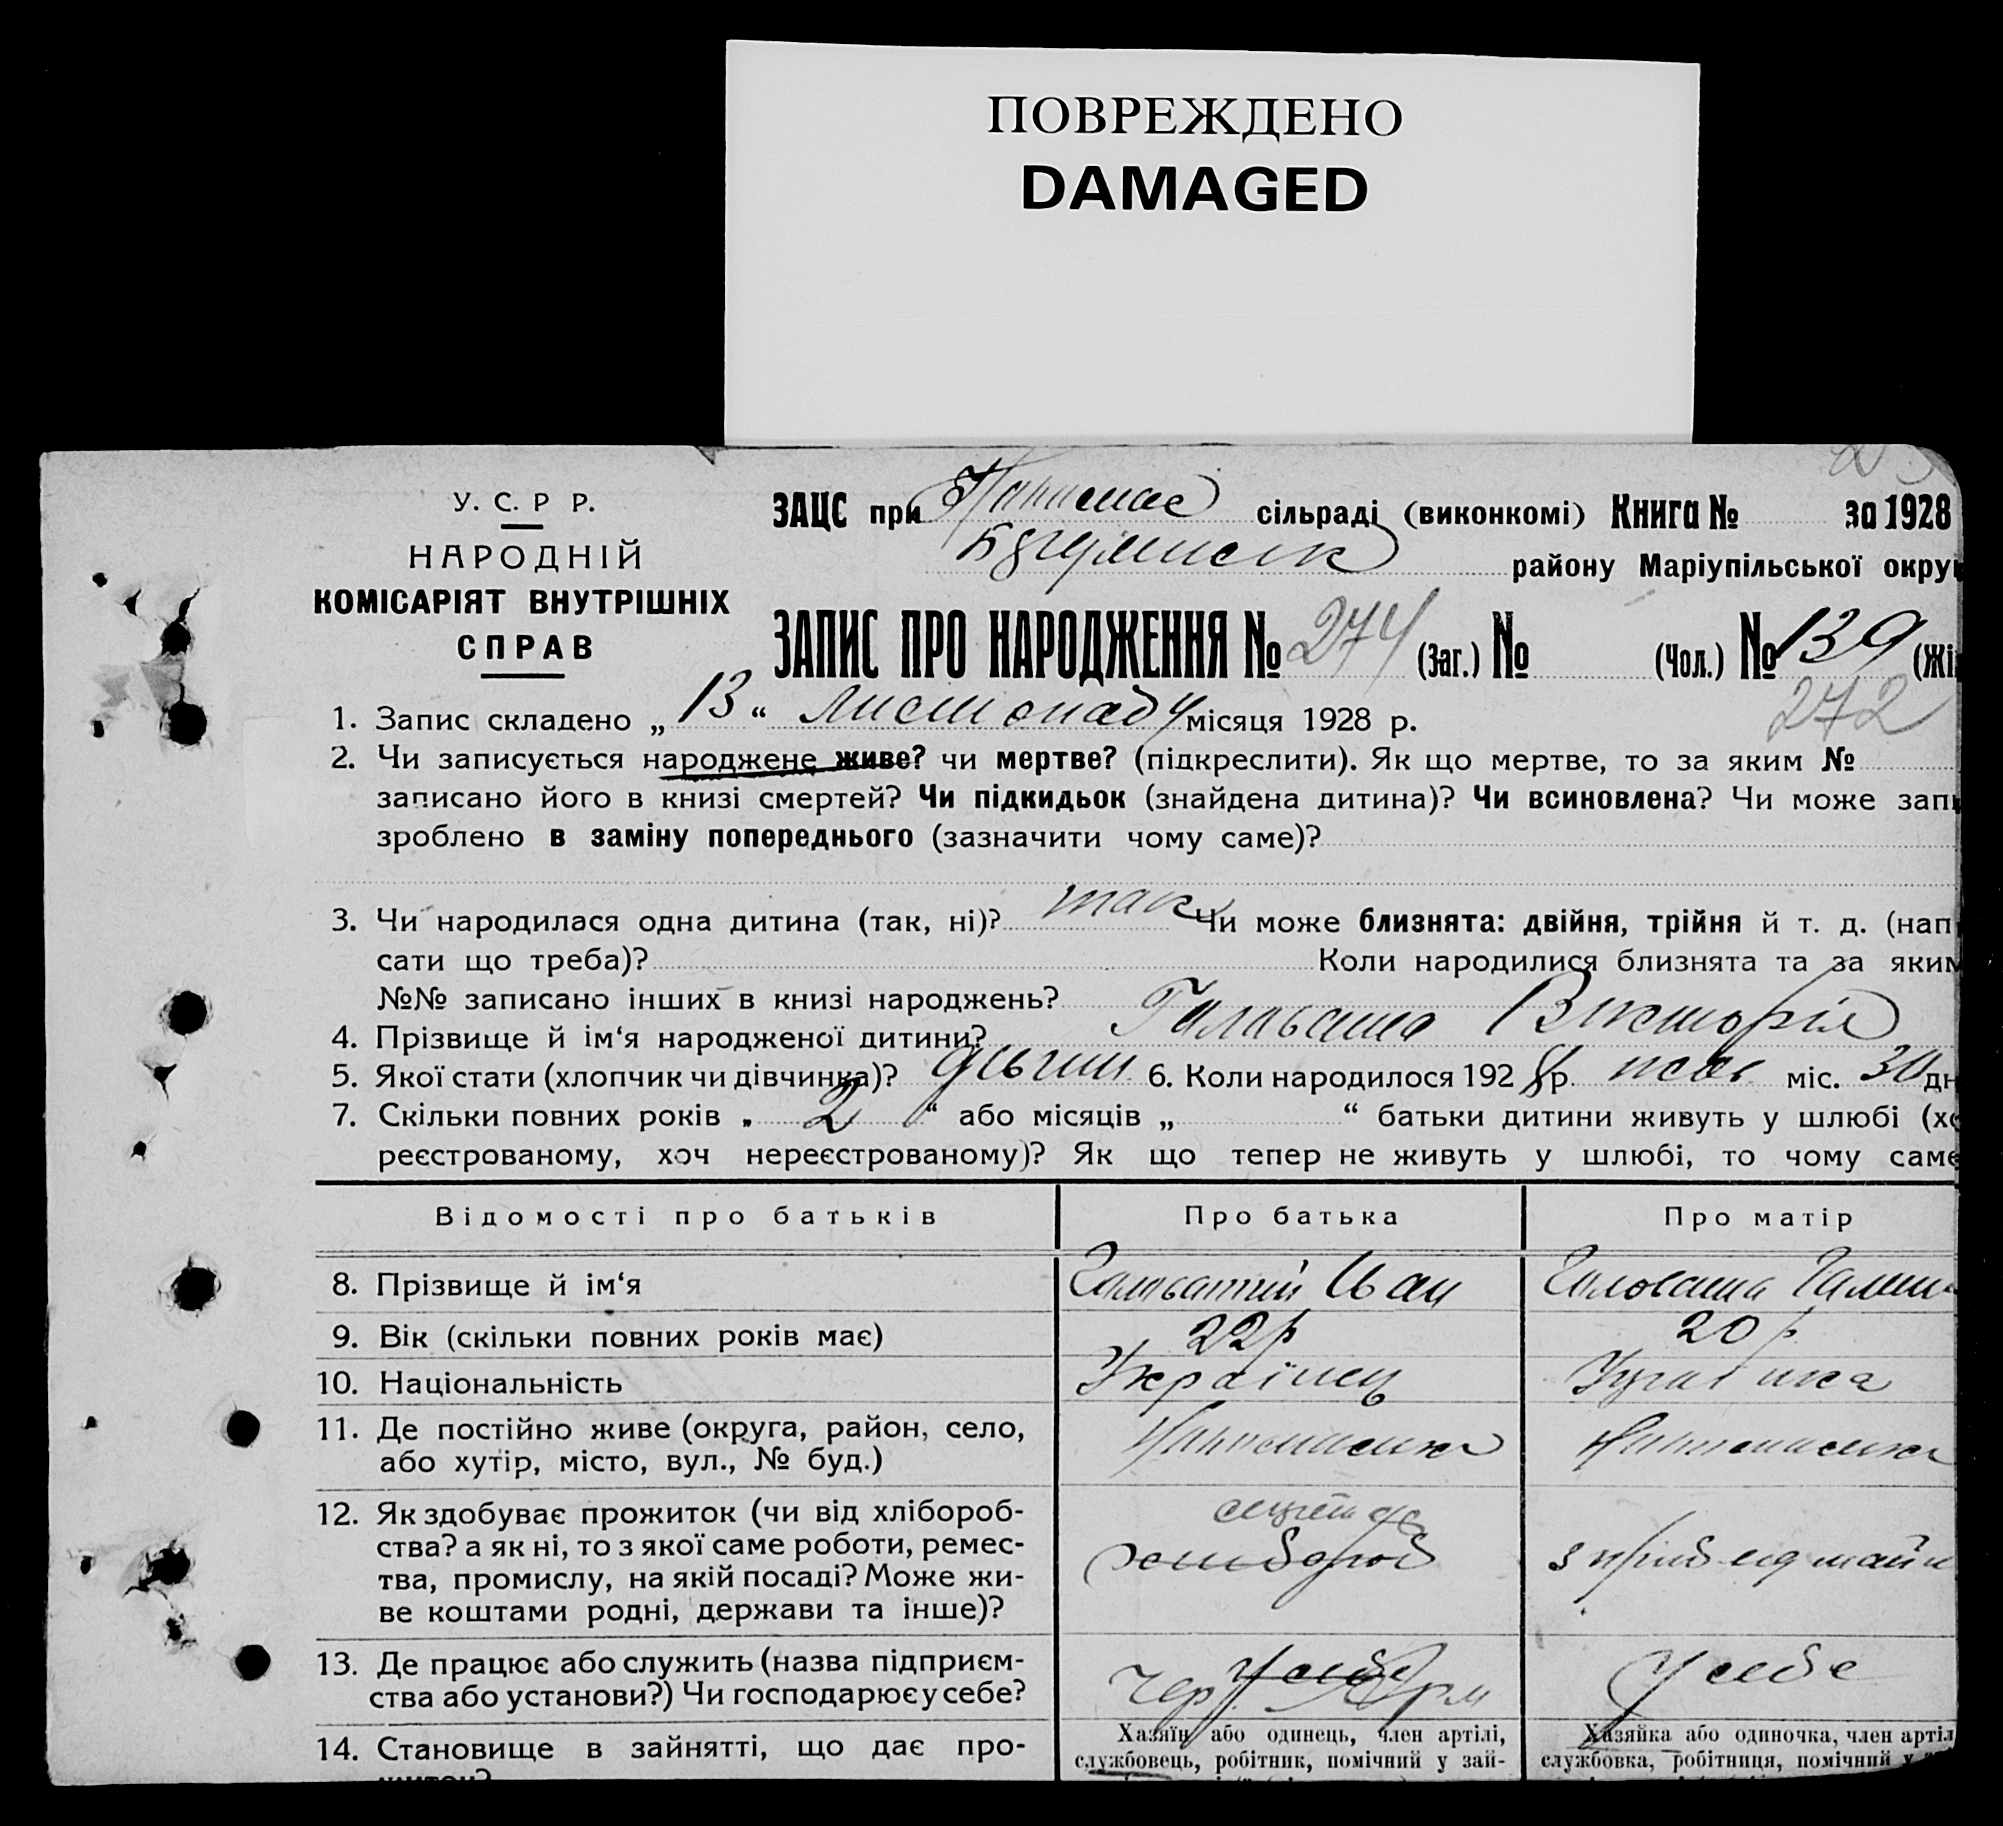 ПОВРЕЖДЕНО
DAMAGED
У. С. Р Р.
НАРОДНІЙ
КОМІСАРІЯТ ВНУТРІШНІХ
СПРАВ
ЗАЦС при сільраді (виконкомі) Книга № за 1928
району Маріупільської округ
ЗАПИС ПРО НАРОДЖЕННЯ № 274 (Заг.) № (Чол.) № 139 (Жі
272
1. Запис складено „ 13 “ листопаду місяця 1928 р.
2. Чи записується народжене живе? чи мертве? (підкреслити). Як що мертве, то за яким №
записано його в книзі смертей? Чи підкидьок (знайдена дитина)? Чи всиновлена? Чи може запи
зроблено в заміну попереднього (зазначити чому саме)?
3. Чи народилася одна дитина (так, ні)? так Чи може близнята: двійня, трійня й т. д. (напи
сати що треба)? Коли народилися близнята та за яким
№№ записано інших в книзі народжень?
4. Прізвище й ім‘я народженої дитини? Головата Вікторія
5. Якої стати (хлопчик чи дівчинка)? 6. Коли народилося 1928 р. міс. 30 дн
7. Скільки повних років „ 2 “ або місяців „ “ батьки дитини живуть у шлюбі (хо
реєстрованому, хоч нереєстрованому)? Як що тепер не живуть у шлюбі, то чому саме
Відомості про батьків Про батька Про матір
8. Прізвище й ім‘я Головатий Іван Головата Галин
9. Вік (скільки повних років має) 22 р 20 р
10. Національність Українець Українка
11. Де постійно живе (округа, район, село,
або хутір, місто, вул., № буд.)
12. Як здобуває прожиток (чи від хлібороб-
ства? а як ні, то з якої саме роботи, ремес-
тва, промислу, на якій посаді? Може жи-
ве коштами родні, держави та інше)?
хлібороб
13. Де працює або служить (назва підприєм-
ства або установи?) Чи господарює у себе?
У себе У себе
14. Становище в зайнятті, що дає про-
житок?
Хазяїн або одинець, член артілі,
службовець, робітник, помічний у зай-
Хазяйка або одиночка, член артіл
службовка, робітниця, помічний у